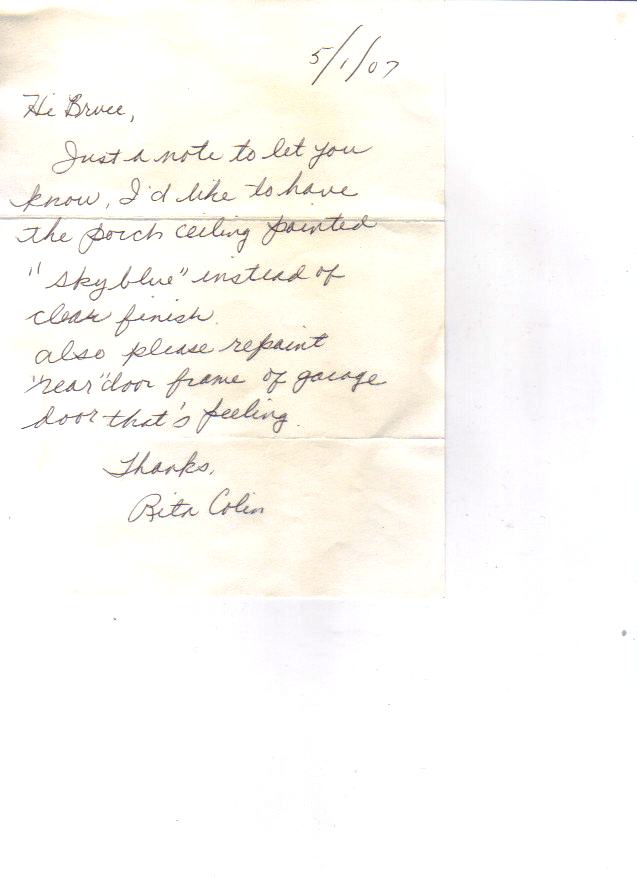 5/1/07
Hi Bruce,
Just a note to let you
know, I'd like to have
the porch ceiling painted
"sky blue" instead of
clear finish.
also please repaint
"rear" door frame of garage
door that's peeling.
Thanks,
Rita Colin